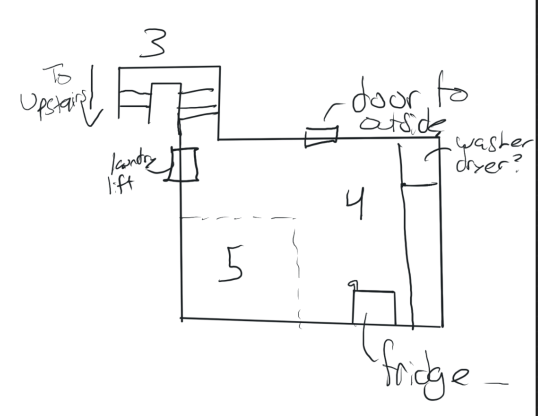 3
To
Upstairs
door to
outside
washer
dryer?
laundry
lift
4
5
fridge